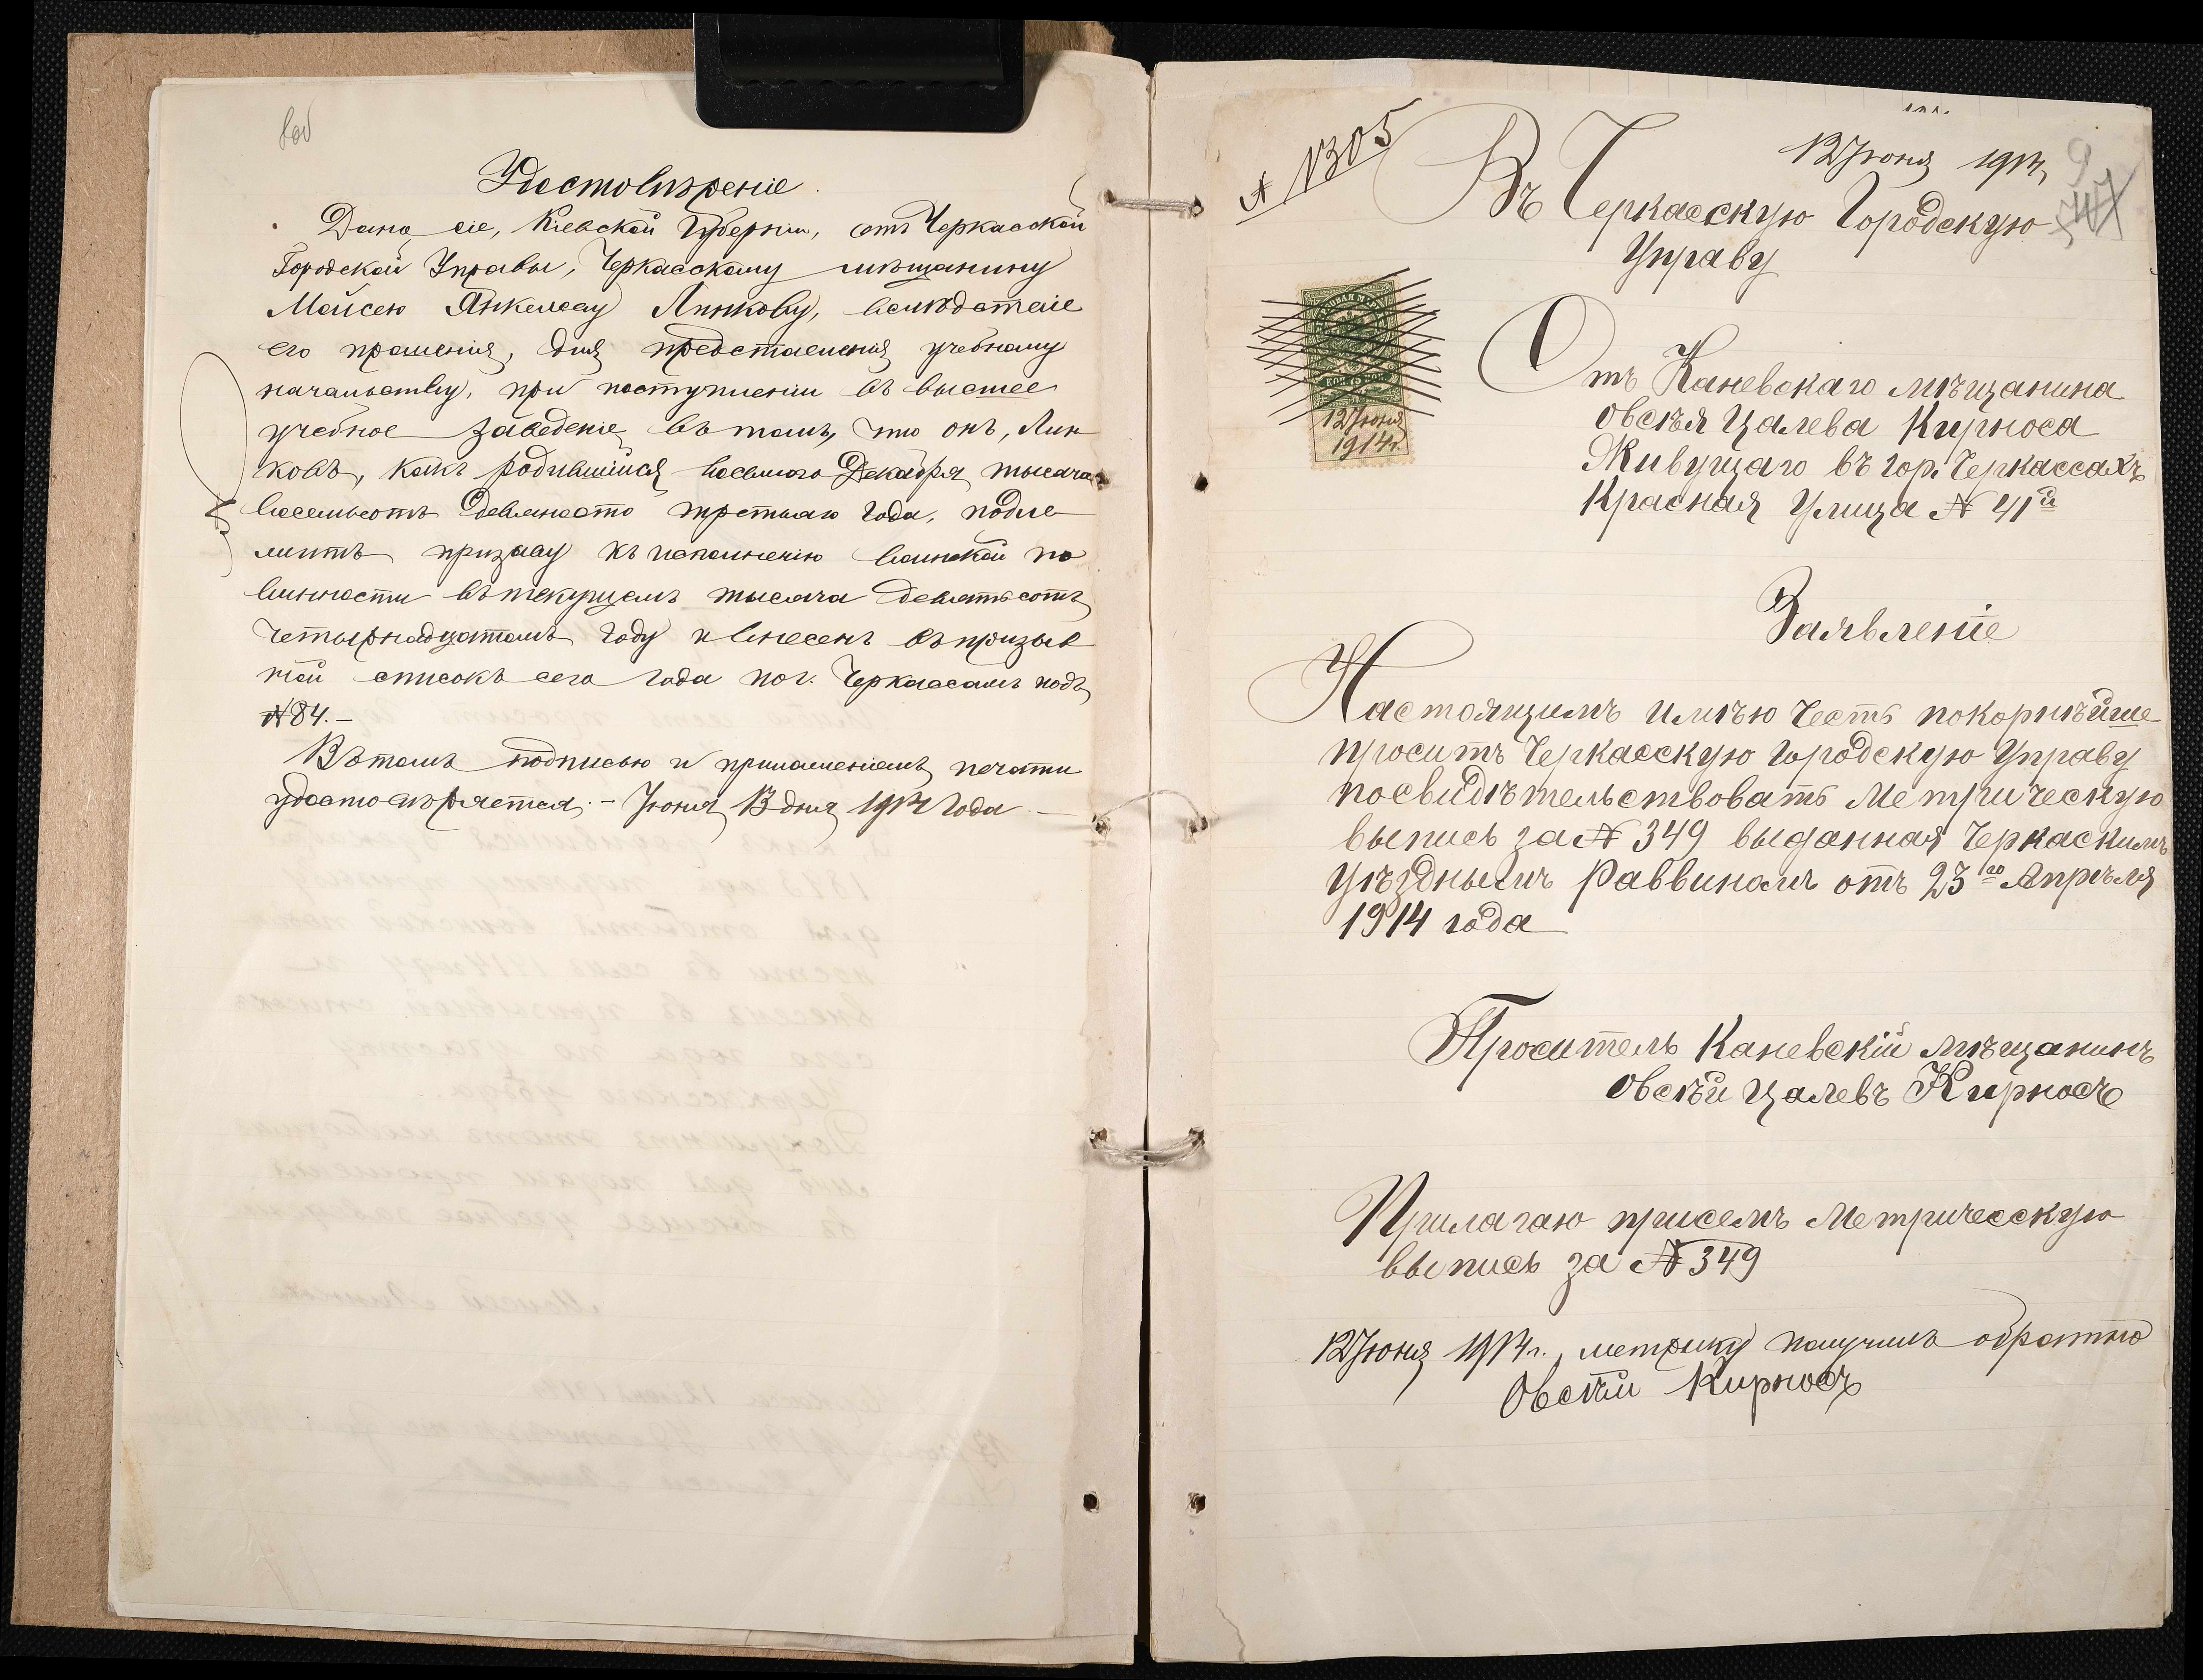 8об
Удостовѣреніе.
Дано сіе, Кіевской Губерніи, отъ Черкасской
Городской Управы, Черкасскому мѣщанину
Мойсею Янкелеву Линкову, вслѣдствіе
его прошенія, для представленія учебному
начальству, при поступленіи въ высшее
учебное заведеніе въ томъ, что онъ, Лин
ковъ, какъ родившійся восьмого Декабря тысяча
восемьсотъ девяносто третьяго года, подле
житъ призыву къ исполненію воинской по
винности въ текущемъ тысяча девятьсотъ
четырнадцатомъ году и внесенъ въ призыв
ной списокъ сего года по г. Черкассамъ подъ
№ 84.–
Въ томъ подписью и приложеніемъ печати
удостовѣряется.– Іюня 13 дня 1914 года.–
№ 1305
12 Іюня 1914 г.
9
Въ Черкасскую Городскую
Управу
12 Іюня
1914 г.
Отъ Каневскаго мѣщанина
Овсѣя Цалева Кирноса
Живущаго въ гор. Черкассахъ
Красная Улица № 41й
Заявленіе
Настоящимъ имѣю честь покорнѣйше
просить Черкасскую Городскую Управу
посвидѣтельствовать Метрическую
выпись за № 349 выданная Черкаскимъ
Уѣзднымъ Раввиномъ отъ 23го Апрѣля
1914 года
Проситель Каневскій мѣщанинъ
Овсѣй Цалевъ Кирносъ
Прилагаю присемъ Метрическую
выпись за № 349
12 Іюня 1914 г. метрику получилъ обратно
Овсѣй Кирносъ